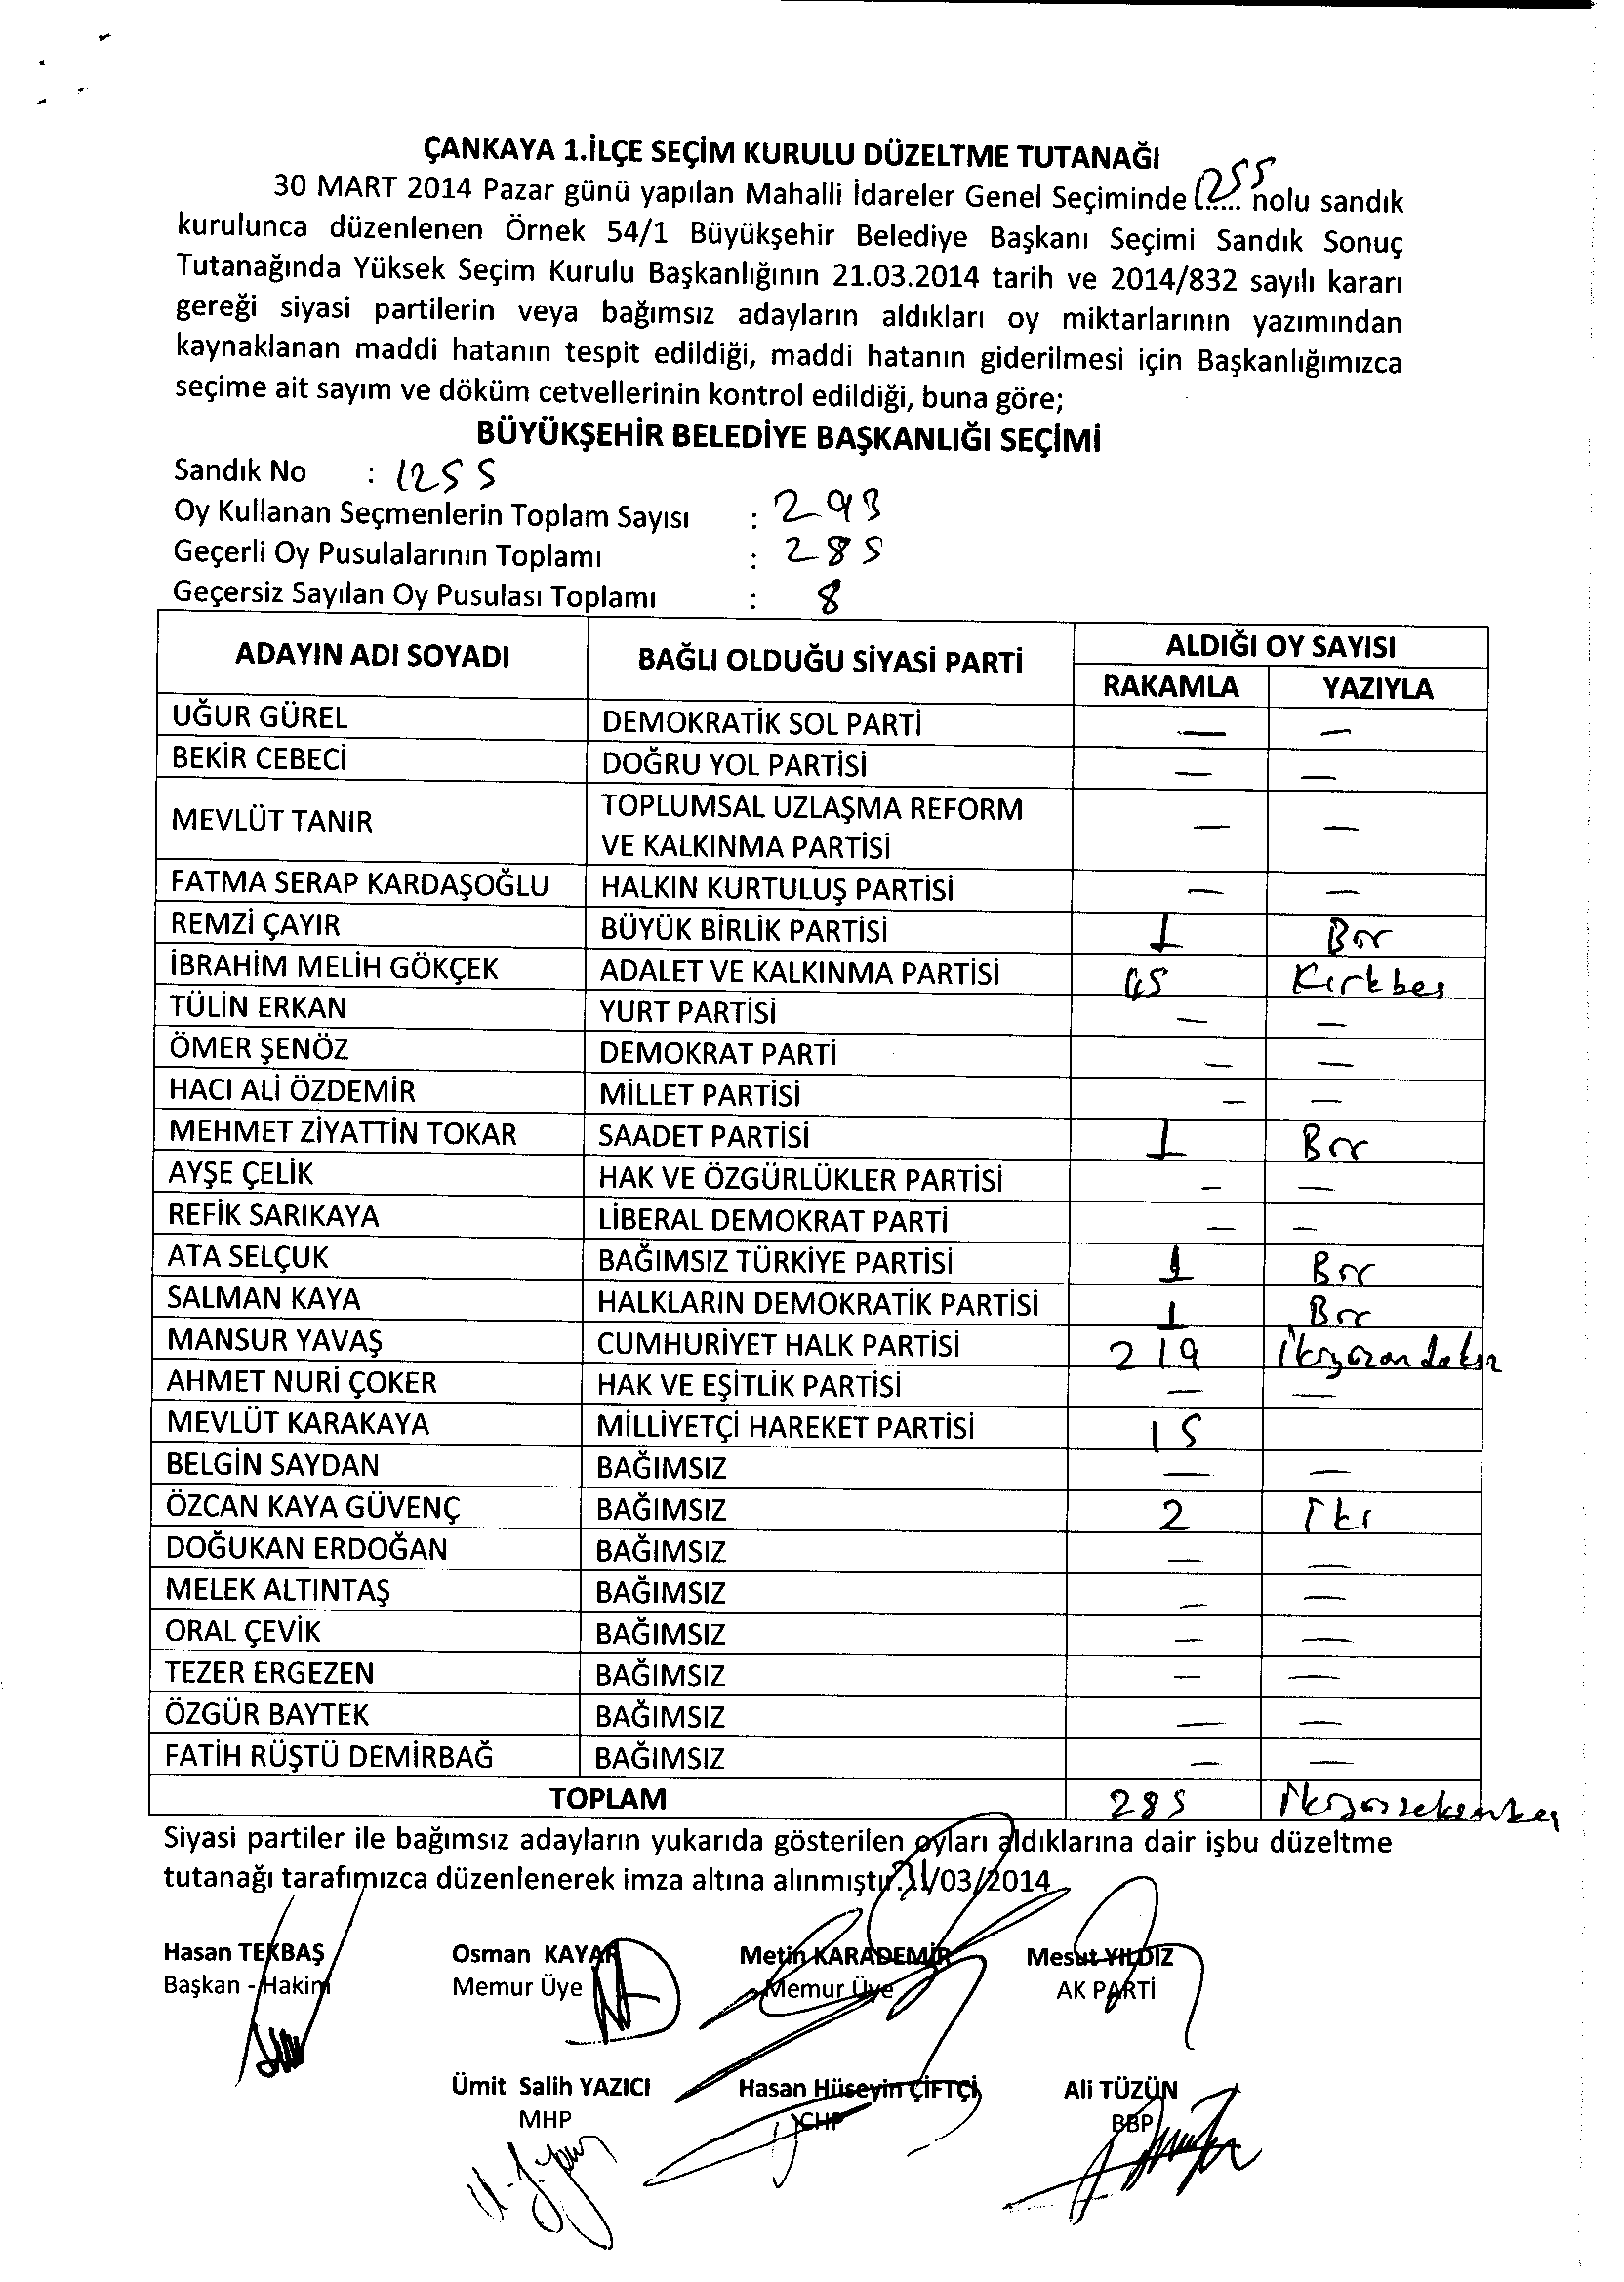 ÇANKAYA 1.İLÇE SEÇİM KURULU DÜZELTME TUTANAĞI
30 MART 2014 Pazar günü yapılan Mahalli İdareler Genel Seçiminde 1255 nolu sandık
kurulunca düzenlenen Örnek 54/1 Büyükşehir Belediye Başkanı Seçimi Sandık Sonuç
Tutanağında Yüksek Seçim Kurulu Başkanlığının 21.03.2014 tarih ve 2014/832 sayılı kararı
gereği siyasi partilerin veya bağımsız adayların aldıkları oy miktarlarının yazımından
kaynaklanan maddi hatanın tespit edildiği, maddi hatanın giderilmesi için Başkanlığımızca
seçime ait sayım ve döküm cetvellerinin kontrol edildiği, buna göre;
BÜYÜKŞEHİR BELEDİYE BAŞKANLIĞI SEÇİMİ
Sandık No : 1255
Oy Kullanan Seçmenlerin Toplam Sayısı : 293
Geçerli Oy Pusulalarının Toplamı : 285
Geçersiz Sayılan Oy Pusulası Toplamı : 8
ADAYIN ADI SOYADI BAĞLI OLDUĞU SİYASİ PARTİ ALDIĞI OY SAYISI
RAKAMLA YAZIYLA
UĞUR GÜREL DEMOKRATİK SOL PARTİ — —
BEKİR CEBECİ DOĞRU YOL PARTİSİ — —
MEVLÜT TANIR TOPLUMSAL UZLAŞMA REFORM
VE KALKINMA PARTİSİ — —
FATMA SERAP KARDAŞOĞLU HALKIN KURTULUŞ PARTİSİ — —
REMZİ ÇAYIR BÜYÜK BİRLİK PARTİSİ 1 Bir
İBRAHİM MELİH GÖKÇEK ADALET VE KALKINMA PARTİSİ 45 Kırkbeş
TÜLİN ERKAN YURT PARTİSİ — —
ÖMER ŞENÖZ DEMOKRAT PARTİ — —
HACI ALİ ÖZDEMİR MİLLET PARTİSİ — —
MEHMET ZİYATTİN TOKAR SAADET PARTİSİ 1 Bir
AYŞE ÇELİK HAK VE ÖZGÜRLÜKLER PARTİSİ — —
REFİK SARIKAYA LİBERAL DEMOKRAT PARTİ — —
ATA SELÇUK BAĞIMSIZ TÜRKİYE PARTİSİ 1 Bir
SALMAN KAYA HALKLARIN DEMOKRATİK PARTİSİ 1 Bir
MANSUR YAVAŞ CUMHURİYET HALK PARTİSİ 219 İkiyüzondokuz
AHMET NURİ ÇOKER HAK VE EŞİTLİK PARTİSİ — —
MEVLÜT KARAKAYA MİLLİYETÇİ HAREKET PARTİSİ 15
BELGİN SAYDAN BAĞIMSIZ — —
ÖZCAN KAYA GÜVENÇ BAĞIMSIZ 2 İki
DOĞUKAN ERDOĞAN BAĞIMSIZ — —
MELEK ALTINTAŞ BAĞIMSIZ — —
ORAL ÇEVİK BAĞIMSIZ — —
TEZER ERGEZEN BAĞIMSIZ — —
ÖZGÜR BAYTEK BAĞIMSIZ — —
FATİH RÜŞTÜ DEMİRBAĞ BAĞIMSIZ — —
TOPLAM 285 İkiyüzseksenbeş
Siyasi partiler ile bağımsız adayların yukarıda gösterilen oyları aldıklarına dair işbu düzeltme
tutanağı tarafımızca düzenlenerek imza altına alınmıştır.31/03/2014
Hasan TEKBAŞ Osman KAYAR Metin KARADEMİR Mesut YILDIZ
Başkan - Hakim Memur Üye Memur Üye AK PARTİ
Ümit Salih YAZICI Hasan Hüseyin ÇİFTÇİ Ali TÜZÜN
MHP CHP BBP